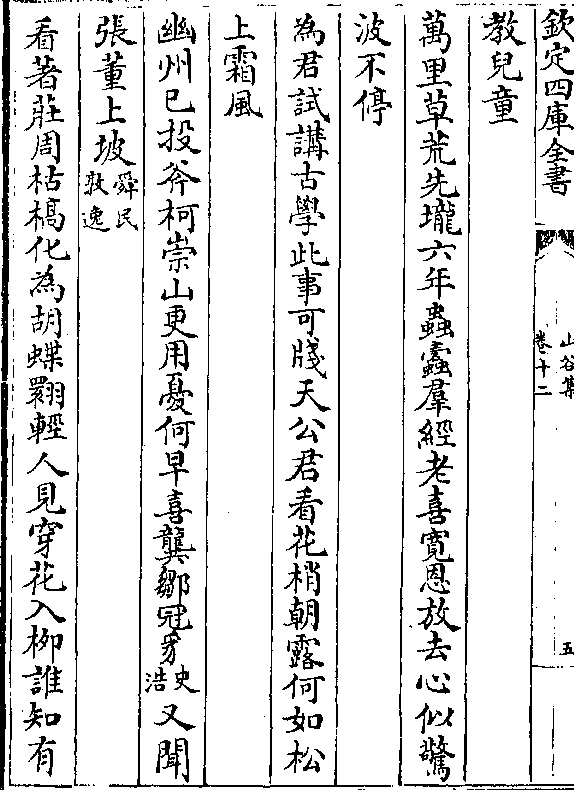 欽定四庫全書
山谷集
卷十二
五
教兒童
萬里草荒先壠六年蟲蠹羣經老喜寛恩放去心似驚
波不停
為君試講古學此事可牋天公君看花梢朝露何如松
上霜風
幽州已投斧柯崇山更用憂何早喜龔鄒冠豸史浩又聞
張董上坡舜民敦逸
看著莊周枯槁化為胡蝶翾輕人見穿花入柳誰知有